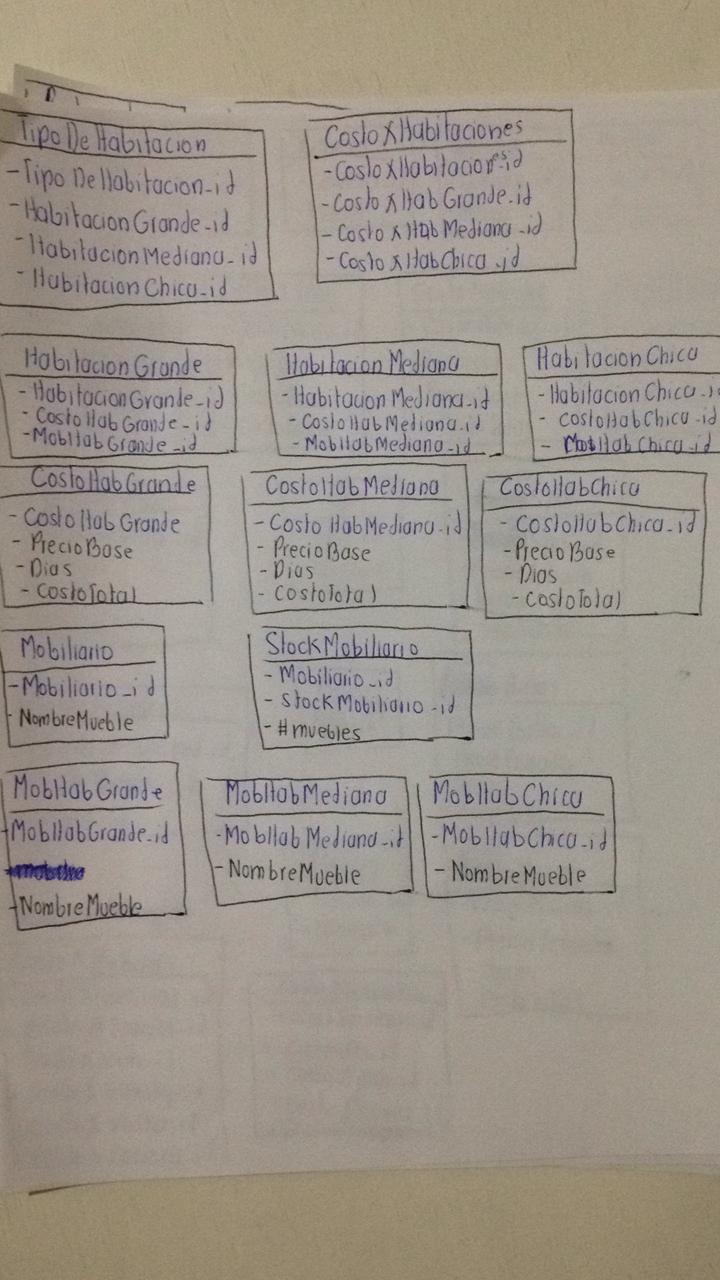 TipoDeHabitacion
- TipoDeHabitacion_id
- HabitacionGrande_id
- HabitacionMediana_id
- HabitacionChica_id
CostoXHabitaciones
- CostoXHabitaciones_id
- CostoXHabGrande_id
- CostoXHabMediana_id
- CostoXHabChica_id
HabitacionGrande
- HabitacionGrande_id
- CostoHabGrande_id
- MobHabGrande_id
HabitacionMediana
- HabitacionMediana_id
- CostoHabMediana_id
- MobHabMediana_id
HabitacionChica
- HabitacionChica_id
- CostoHabChica_id
- MobHabChica_id
CostoHabGrande
- CostoHabGrande
- PrecioBase
- Dias
- CostoTotal
CostoHabMediana
- CostoHabMediana_id
- PrecioBase
- Dias
- CostoTotal
CostoHabChica
- CostoHabChica_id
- PrecioBase
- Dias
- CostoTotal
Mobiliario
- Mobiliario_id
- NombreMueble
StockMobiliario
- Mobiliario_id
- StockMobiliario_id
- #muebles
MobHabGrande
- MobHabGrande_id
- NombreMueble
MobHabMediana
- MobHabMediana_id
- NombreMueble
MobHabChica
- MobHabChica_id
- NombreMueble